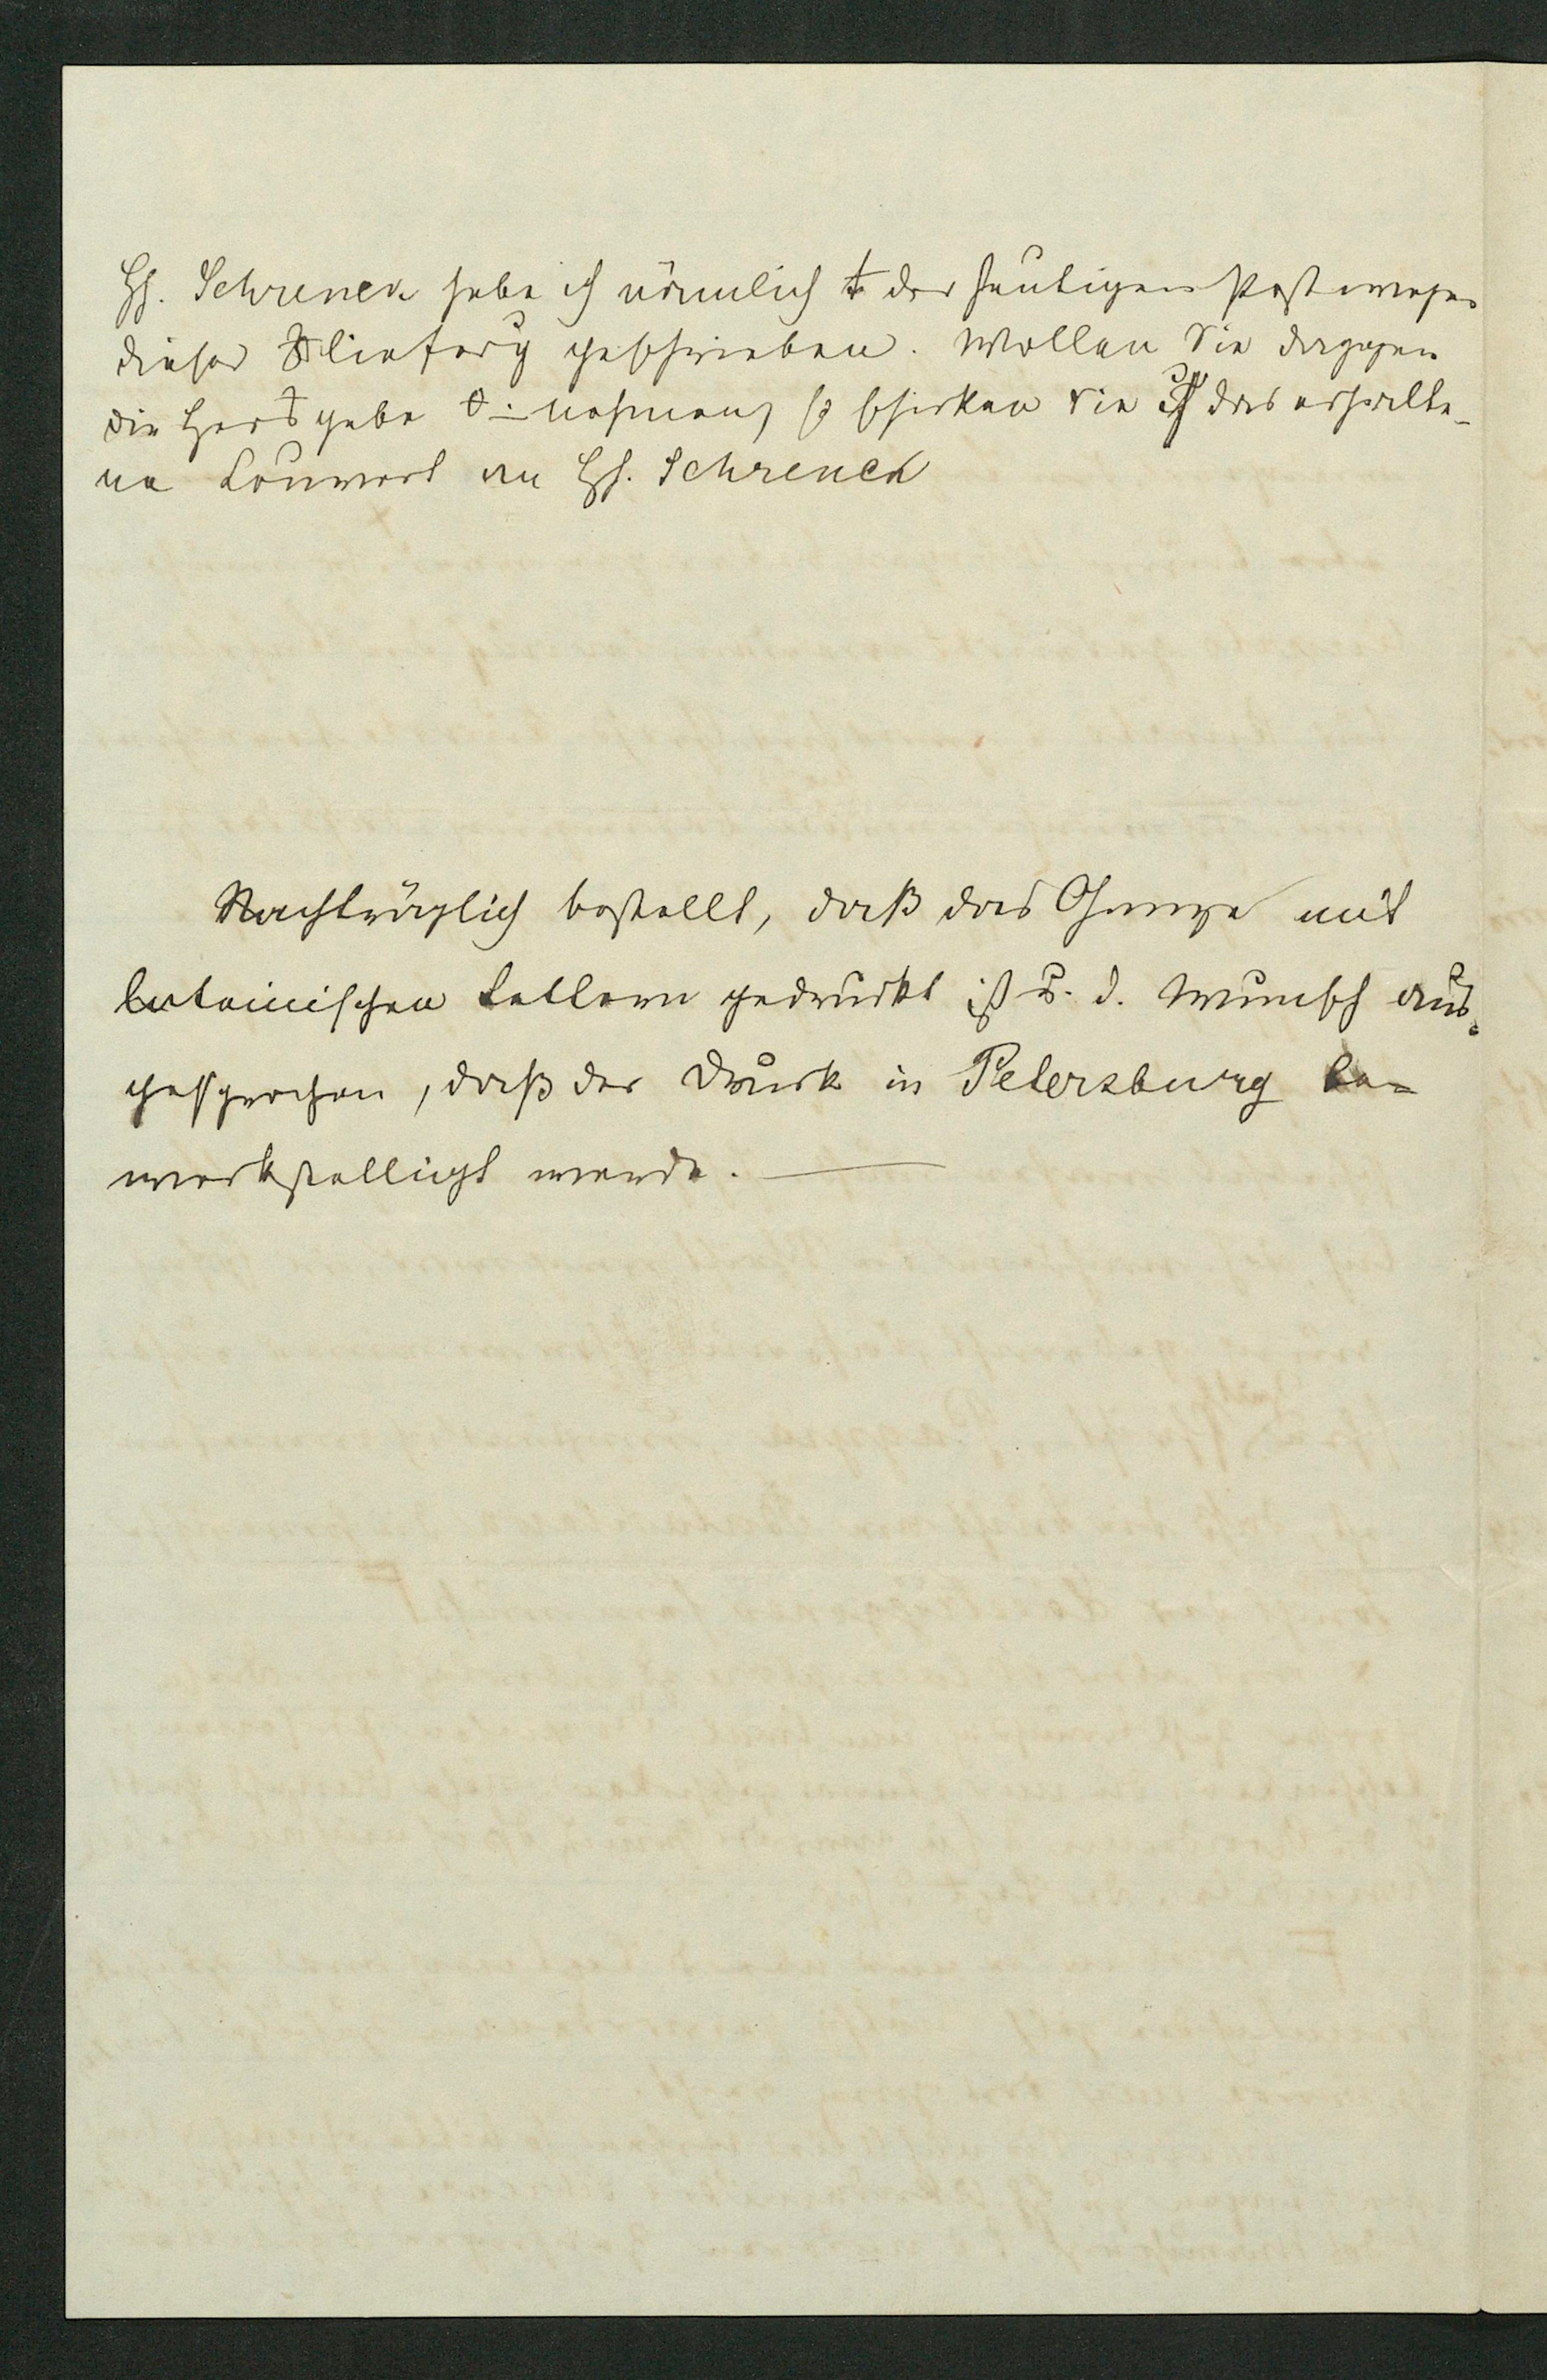 H. Schrenck habe ich nämlich der heutigen Post wegen
dieser geschrieben. Wollen Sie dagegen
die Herausgabe nehmen, so schicken Sie das erhalte-
ne Convert an H. Schrenck
Nachträglich bestellt, daß das Ganze mit
lateinischen Lettern gedruckt ist u. d. Wunsch aus-
gesprochen, daß der Druck in Petersburg be-
werkstelligt werde. —